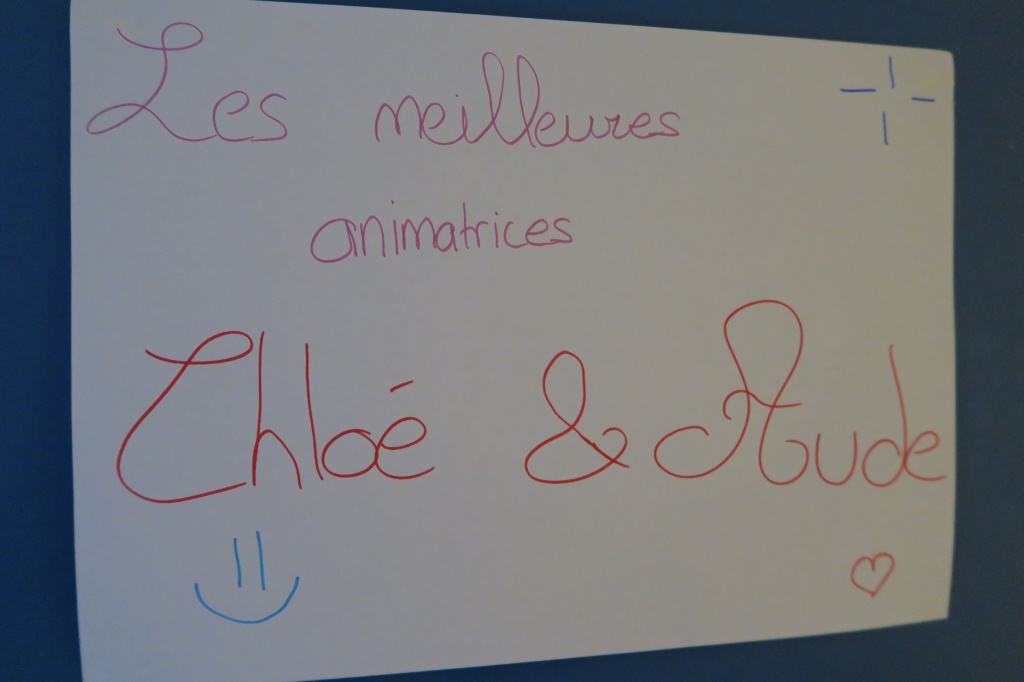 Les meilleures
animatrices
Chloé & Aude